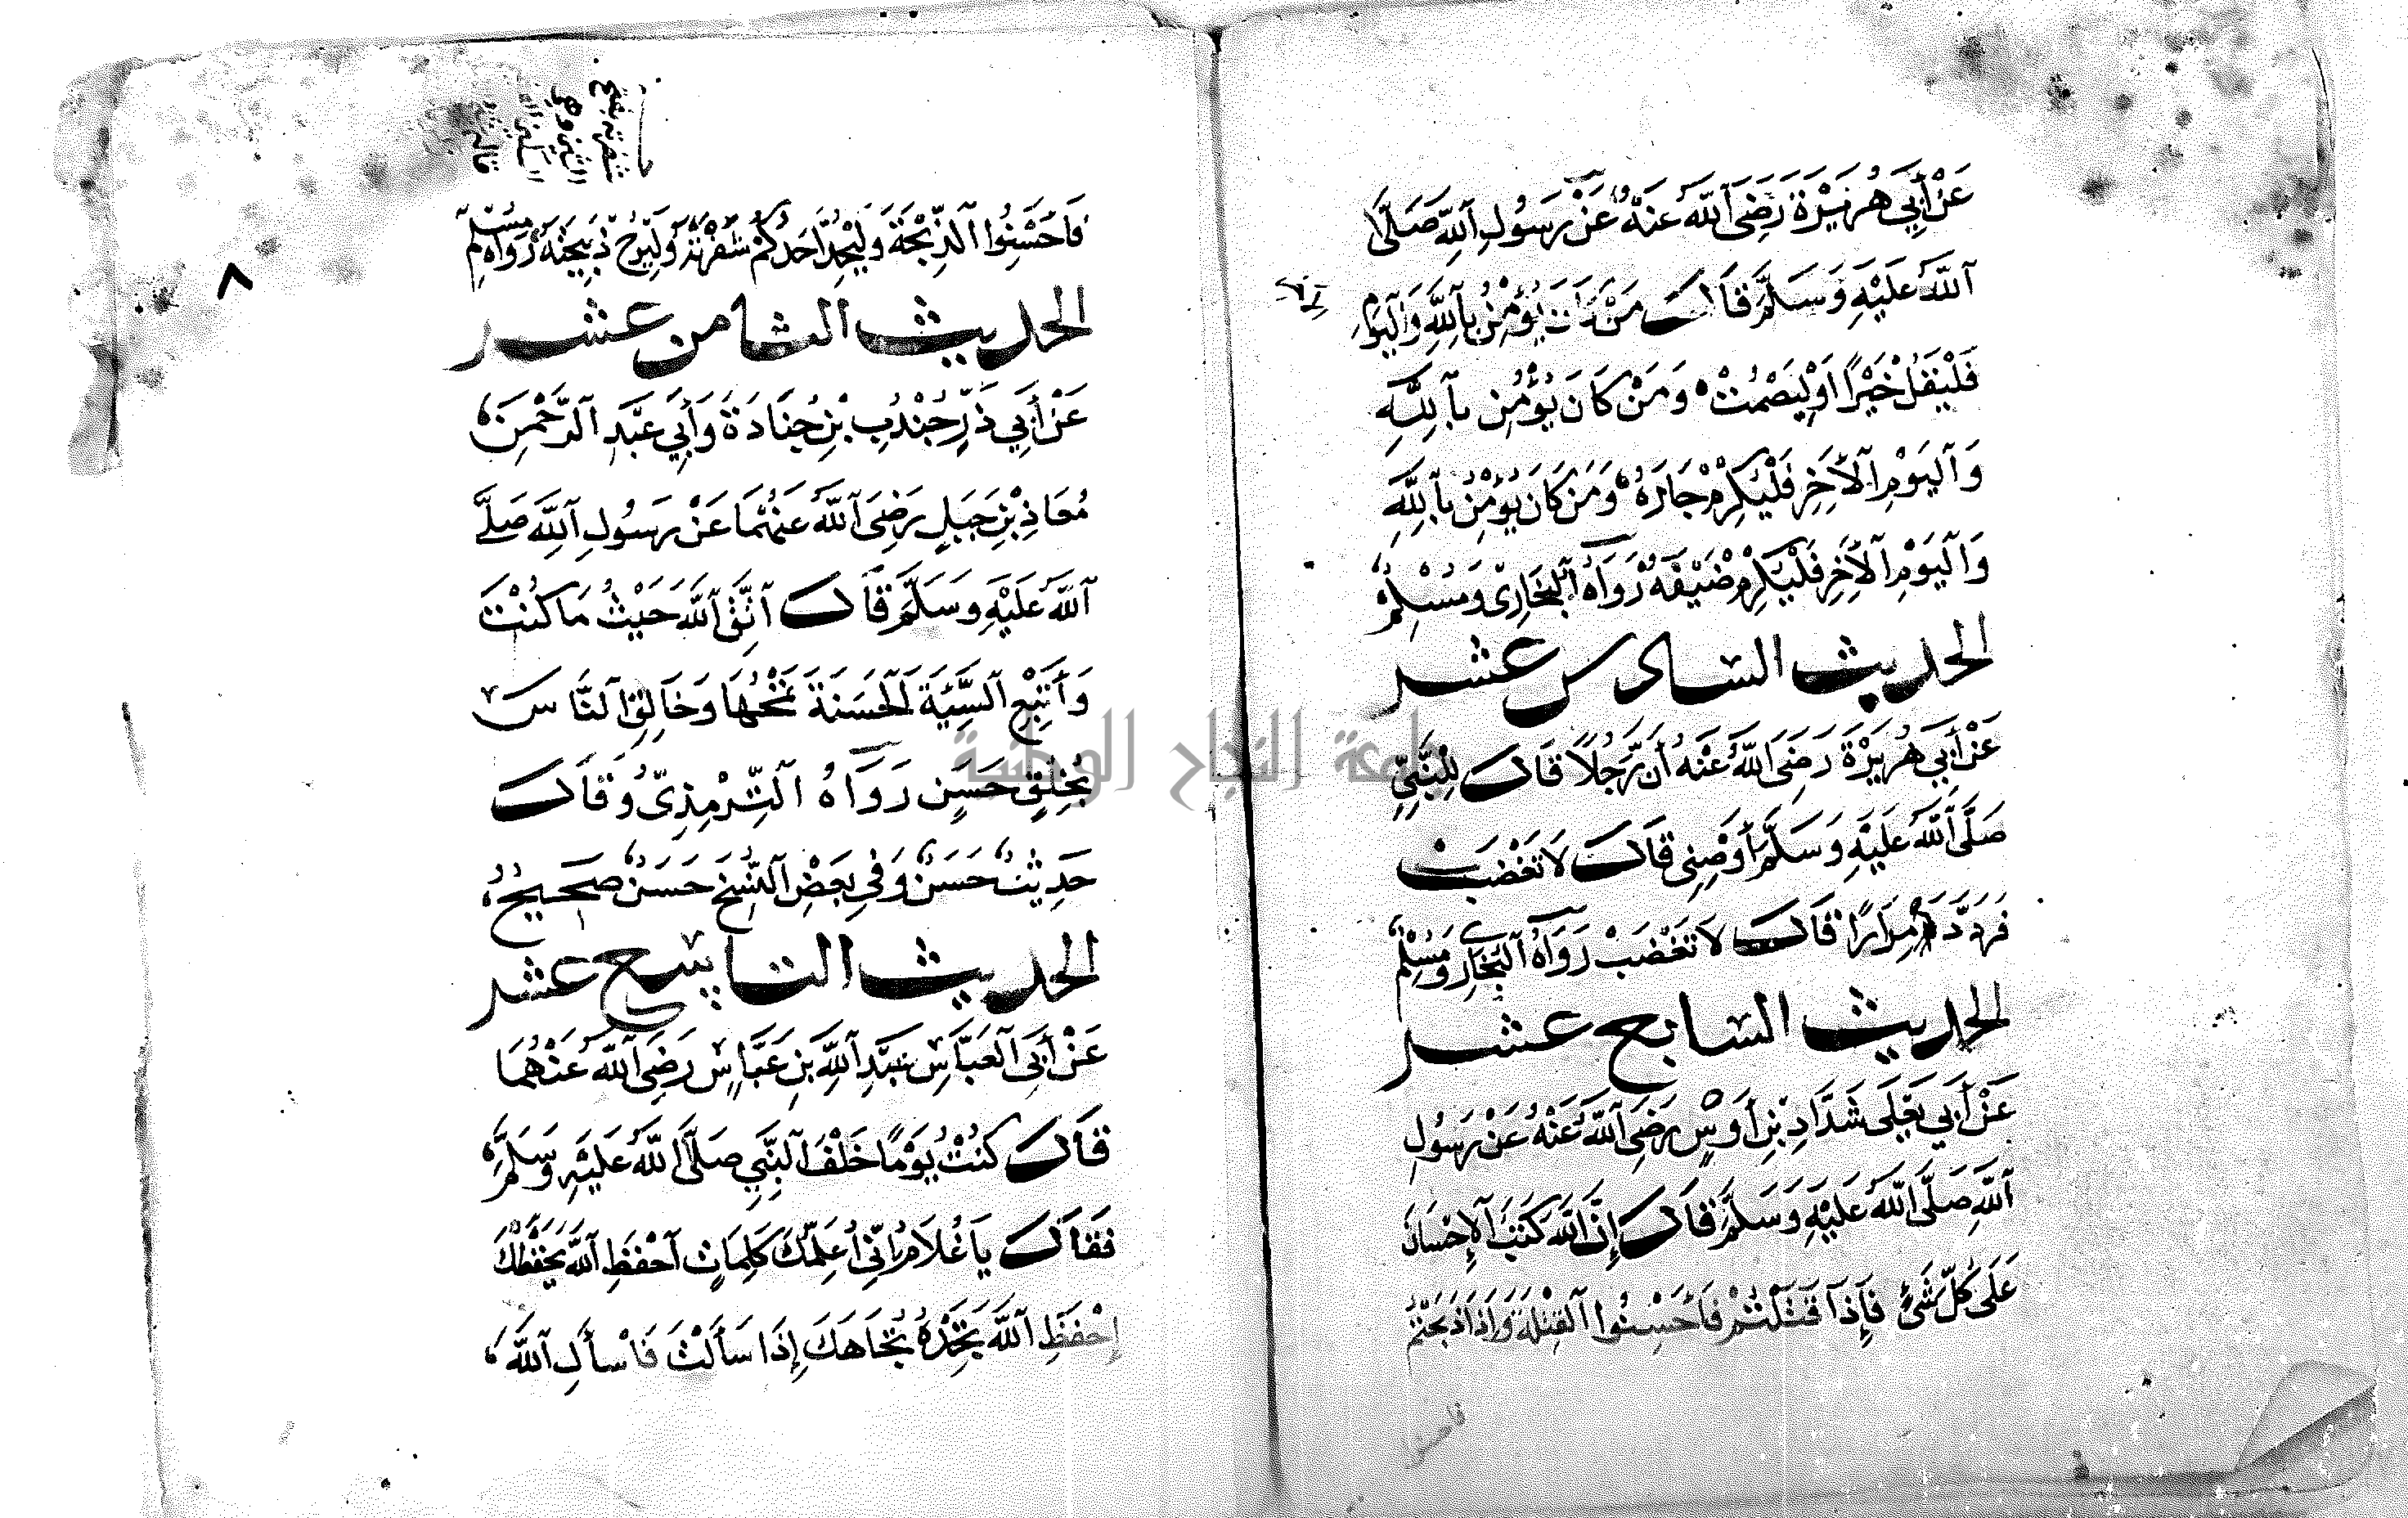 عَنْ أَبِي هُرَيْرَةَ رَضِيَ اللَّهُ عَنْهُ عَنْ رَسُولِ اللَّهِ صَلَّى
اللَّهُ عَلَيْهِ وَسَلَّمَ قَالَ مَنْ كَانَ يُؤْمِنُ بِاللَّهِ وَالْيَوْمِ
الآخر
فَلْيَقُلْ خَيْرًا أَوْ لِيَصْمُتْ وَمَنْ كَانَ يُؤْمِنُ بِاللَّهِ
وَالْيَوْمِ الْآخِرِ فَلْيُكْرِمْ جَارَهُ وَمَنْ كَانَ يُؤْمِنُ بِاللَّهِ
وَالْيَوْمِ الْآخِرِ فَلْيُكْرِمْ ضَيْفَهُ رَوَاهُ الْبُخَارِيُّ وَمُسْلِمٌ
الحديث السادس عشر
عَنْ أَبِي هُرَيْرَةَ رَضِيَ اللَّهُ عَنْهُ أَنَّ رَجُلًا قَالَ لِلنَّبِيِّ
صَلَّى اللَّهُ عَلَيْهِ وَسَلَّمَ أَوْصِنِي قَالَ لَا تَغْضَبْ
فَرَدَّدَ مِرَارًا قَالَ لَا تَغْضَبْ رَوَاهُ الْبُخَارِي وَمُسْلِم
الحديث السابع عشر
عَنْ أَبِي يَعْلَى شَدَّادِ بْنِ أَوْسٍ رَضِيَ اللَّهُ عَنْهُ عَنْ رَسُولِ
اللَّهِ صَلَّى اللَّهُ عَلَيْهِ وَسَلَّمَ قَالَ إِنَّ اللَّهَ كَتَبَ الْإِحْسَانَ
عَلَى كُلِّ شَيْءٍ فَإِذَا قَتَلْتُمْ فَأَحْسِنُوا الْقِتْلَةَ وَإِذَا ذَبَحْتُمْ
فَأَحْسِنُوا الذِّبْحَةَ وَلْيُحِدَّ أَحَدُكُمْ شَفْرَتَهُ وَلْيُرِحْ ذَبِيحَتَهُ رَوَاهُ مُسْلِمٌ
الحديث الثامن عشر
عَنْ أَبِي ذَرٍّ جُنْدُبِ بْنِ جُنَادَةَ وَأَبِي عَبْدِ الرَّحْمَنِ
مُعَاذِ بْنِ جَبَلٍ رَضِيَ اللَّهُ عَنْهُمَا عَنْ رَسُولِ اللَّهِ صَلَّى
اللَّهُ عَلَيْهِ وَسَلَّمَ قَالَ اتَّقِ اللَّهَ حَيْثُ مَا كُنْتَ
وَأَتْبِعِ السَّيِّئَةَ الْحَسَنَةَ تَمْحُهَا وَخَالِقِ النَّاسَ
بِخُلُقٍ حَسَنٍ رَوَاهُ التِّرْمِذِيُّ وَقَالَ
حَدِيثٌ حَسَنٌ وَفِي بَعْضِ النُّسَخِ حَسَنٌ صَحِيحٌ
الحديث التاسع عشر
عَنْ أَبِي الْعَبَّاسِ عَبْدِ اللَّهِ بْنِ عَبَّاسٍ رَضِيَ اللَّهُ عَنْهُمَا
قَالَ كُنْتُ يَوْمًا خَلْفَ النَّبِيِّ صَلَّى اللَّهُ عَلَيْهِ وَسَلَّمَ
فَقَالَ يَا غُلَامُ إِنِّي أُعَلِّمُكَ كَلِمَاتٍ احْفَظِ اللَّهَ يَحْفَظْكَ
احْفَظِ اللَّهَ تَجِدْهُ تُجَاهَكَ إِذَا سَأَلْتَ فَاسْأَلِ اللَّهَ
٨
جامعة النجاح الوطنية